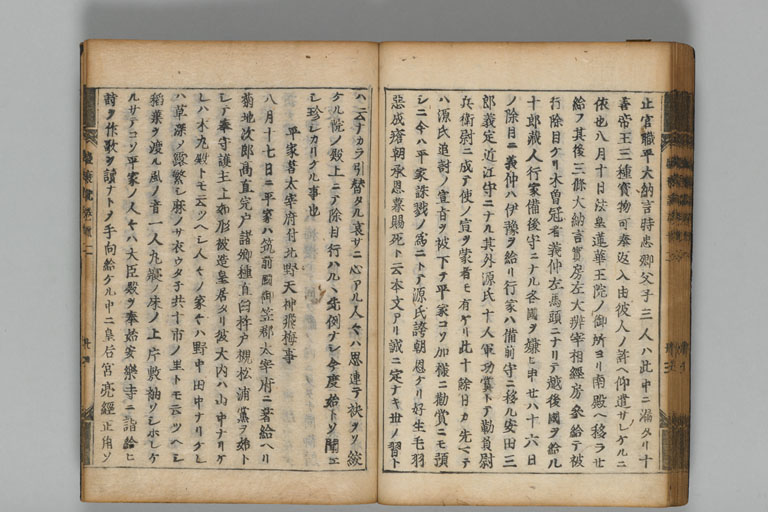 止官職平大納言時忠卿父子三人ハ此中ニ漏タリ十
善帝王三種寳物可奉返入由彼人ノ許ヘ仰遣サレケルニ
依也八月十日法皇蓮華王院ノ御所ヨリ南殿ヘ移ラせ
給フ其後三條大納言實房左大辨宰相經房参給テ被
行除目ケリ木曽冠者義仲左馬頭ニナリテ越後國ヲ給ル
十郎藏人行家備後守ニナル各國ヲ嫌ヒ申せハ十六日
ノ除目ニ義仲ハ伊豫ヲ給リ行家ハ備前守ニ移ル安田三
郎義定近江守ニナル其外源氏十人軍功賞トテ靱負尉
兵衛尉ニ成テ使ノ宣ヲ蒙者モ有ケリ此十餘日カ先マテ
ハ源氏追討ノ宣旨ヲ被下テ平家コソ加様ニ勸賞ニモ預
シニ今ハ平家誅戮ノ為ニトテ源氏誇朝恩ケリ好生毛羽
惡成瘡朝承恩暮賜死ト云本文アリ誠ニ定ナキ世ノ習ト
ハ云ナカラ引替タル哀サニ心アル人々ハ思連テ袂ヲソ絞
ケル院ノ殿上ニテ除目行ハルヽ先例ナシ今度始トソ聞エ
シ珍シカリケル事也
平家著太宰府付北野天神飛梅事
八月十七日ニ平家ハ筑前國御笠郡太宰府ニ著給ヘリ
菊地次郎髙直宍戸諸郷種直臼杵戸槻松浦黨ヲ始ト
シテ奉守護主上如形被造皇居タリ彼大内ハ山中ナリケ
レハ木丸殿トモ云ツヘシ人々ノ家々ハ野中田中ナリケレ
ハ草深ノ露繁シ麻ノサ衣ウタ子共十市ノ里トモ云ツヘシ
稲葉ヲ渡ル風ノ音一人丸寢ノ床ノ上片敷袖ソシホレケ
ルサテコソ平家ノ人々ハ大臣殿ヲ奉始安樂寺ニ詣給ヒ
詩ヲ作歌ヲ讀ナトシテ手向給ケル中ニ皇后宮亮經正角ソ